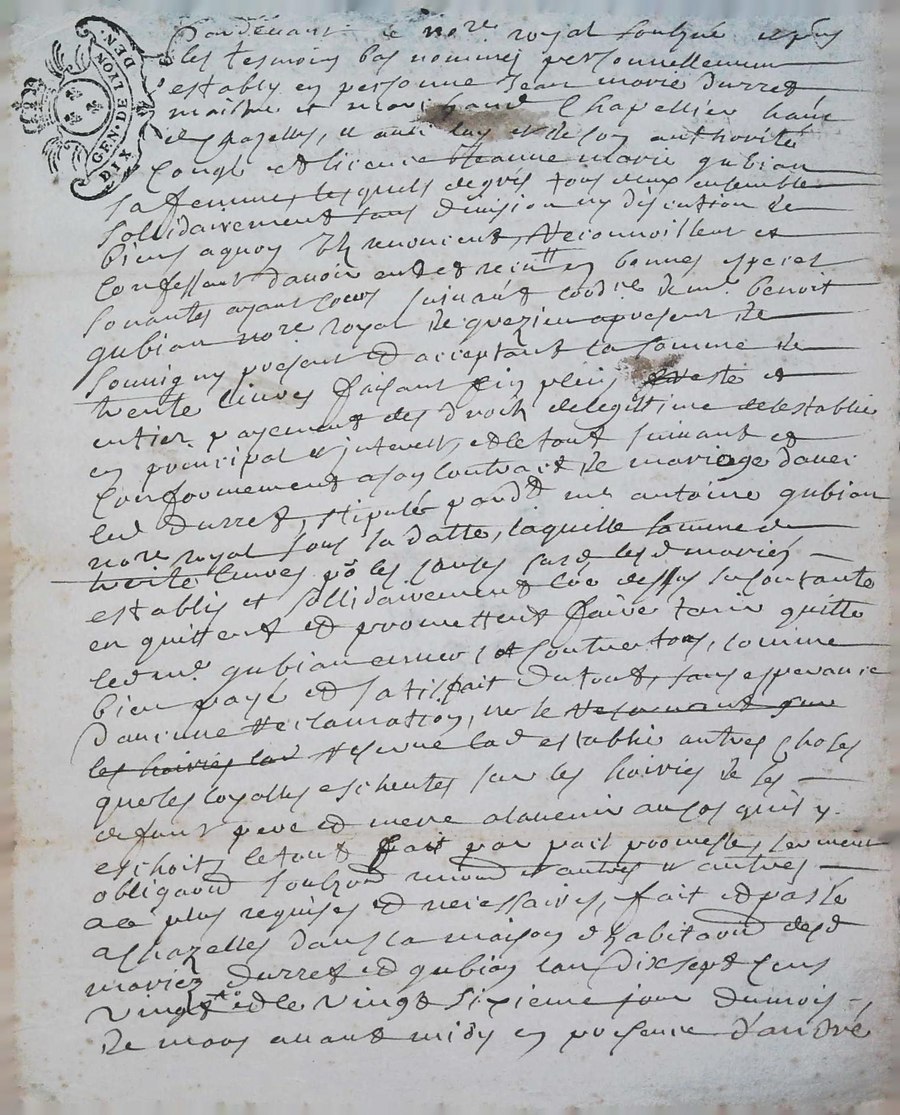 GEN. DE LYON DIX DEN.
Pardevant le nore. royal soubzné et pnts
les tesmoins bas nommés personnellement
estably en personne Jean marie durret
maistre et marchand Chapellier haut
et chazelles, et auth luy et de son authorité
Congé et licence Jeanne marie gubian
sa femme, lesquels de gré tous deux ensemble
sollidairement sans division ny discution de
biens a quoy Ils renoncent, Reconnoissent et
Confessent d'avoir eu et receu en bonnes especes
sonantes ayant cours suivant l'ordce de mr. benoit
gubian nore royal de grezieu a present de
Souvigny present et acceptant la somme de
trente livres faisant fin plein reste et
entier payement des droits de legittime de lestablie
en principal et interest, et le tout suivant et
Conformement a son Contract de mariage d'avec
led durret, stipulé pard me antoine gubian
nore royal sous sa datte, laquelle somme de
trente livres po les causes sard lesd mariés
establis et sollidairement co dessus se contante
en quittent et promettent faire tenir quitte
led mr. gubian envers et contre tous, comme
bien payé et satisfait du tout, sans esperance
d'aucune Reclamation, ne le
les hoiries lad Reserve lad establie autres choses
que les loyalles escheutes sur les hoiries de ses
defunt pere et mere a lavenir au cas quil y
eschoit, le tout fait par pait promesses, serment
obligaond soubzond renond et autres et autres
a ce plus requises et necessaires, fait et passé
a Chazelles dans la maison d'habitaond desd
mariez durret et gubian lan dix sept Cens
Vingt et le Vingt sixieme jour du mois
de mars avant midy en presence d'andré